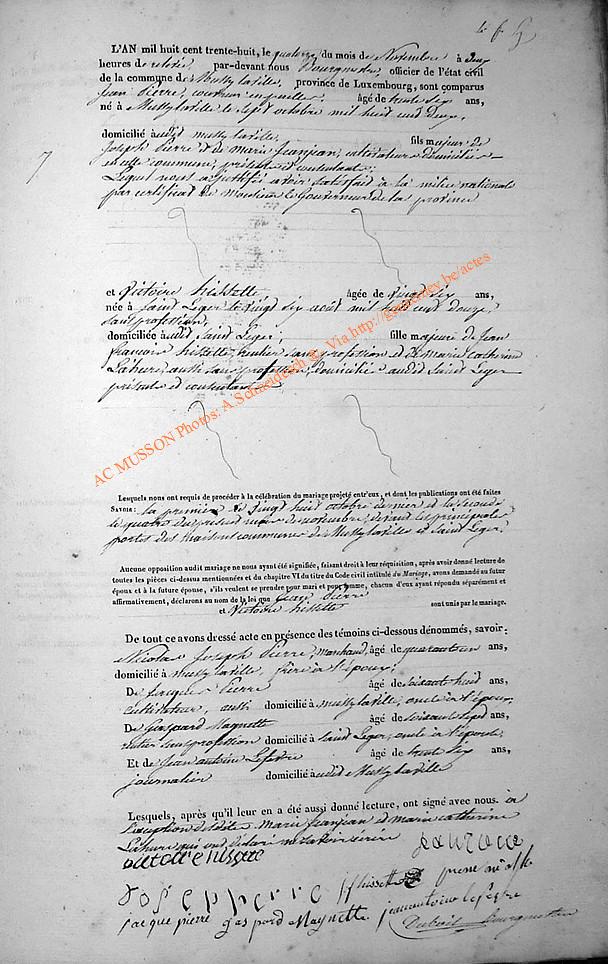 L'AN mil huit cent trente-huit, le quatorze du mois de Novembre à deux
heures de relevée par-devant nous Bourgmestre, officier de l'état civil
de la commune de Mussy laville, province de Luxembourg, sont comparus
Jean Pierre, âgé de trente six ans,
né à Mussy laville le sept octobre mil huit cent deux,
domicilié audit Mussy laville, fils majeur de
Joseph Pierre et de Marie Jeanjean, cultivateurs domiciliés
en cette commune, présents et consentants;
Lequel nous a justifié avoir satisfait à la milice nationale
par certificat de Monsieur le Gouverneur de la province
7
et Victoire hissette âgée de vingt six ans,
née à Saint Leger le vingt six août mil huit cent douze
sans profession,
domiciliée audit Saint Leger, fille majeure de Jean
françois hissette, rentier sans profession et de Marie Catherine
Lahure, aussi sans profession, domiciliés audit Saint Leger
présents et consentants
Lesquels nous ont requis de procéder à la célébration du mariage projeté entr'eux, et dont les publications ont été faites
SAVOIR: la première le vingt huit octobre dernier et la seconde
le quatre du présent mois de novembre, devant les principales
portes des maisons communes de Mussy laville et Saint Leger.
Aucune opposition audit mariage ne nous ayant été signifiée, faisant droit à leur réquisition, après avoir donné lecture de
toutes les pièces ci-dessus mentionnées et du chapitre VI du titre du Code civil intitulé du Mariage, avons demandé au futur
époux et à la future épouse, s'ils veulent se prendre pour mari et pour femme, chacun d'eux ayant répondu séparément et
affirmativement, déclarons au nom de la loi que Jean Pierre
et Victoire hissette sont unis par le mariage.
De tout ce avons dressé acte en présence des témoins ci-dessous dénommés, savoir:
Nicolas Joseph Pierre, marchand, âgé de quarante un ans,
domicilié à Mussy laville, frère à l'époux,
De Jacques Pierre âgé de soixante huit ans,
cultivateur, aussi domicilié à Mussy laville, oncle à l'époux,
De Gaspard Magnette âgé de soixante sept ans,
rentier sans profession domicilié à Saint Leger, oncle à l'épouse,
Et de Jean antoine Lefevre âgé de trente six ans,
journalier domicilié audit Mussy laville
Lesquels, après qu'il leur en a été aussi donné lecture, ont signé avec nous. à
l'exception desdites Marie Jeanjean et Marie Catherine
Lahure qui ont déclaré ne savoir écrire
victoire hissette
Josepp pierre jf hissette
jacque pierre gaspard Magnette jean antoine lefevre
Bourgmestre
AC MUSSON Photos: A.Schneidesch ©. Via http://geneanney.be/actes